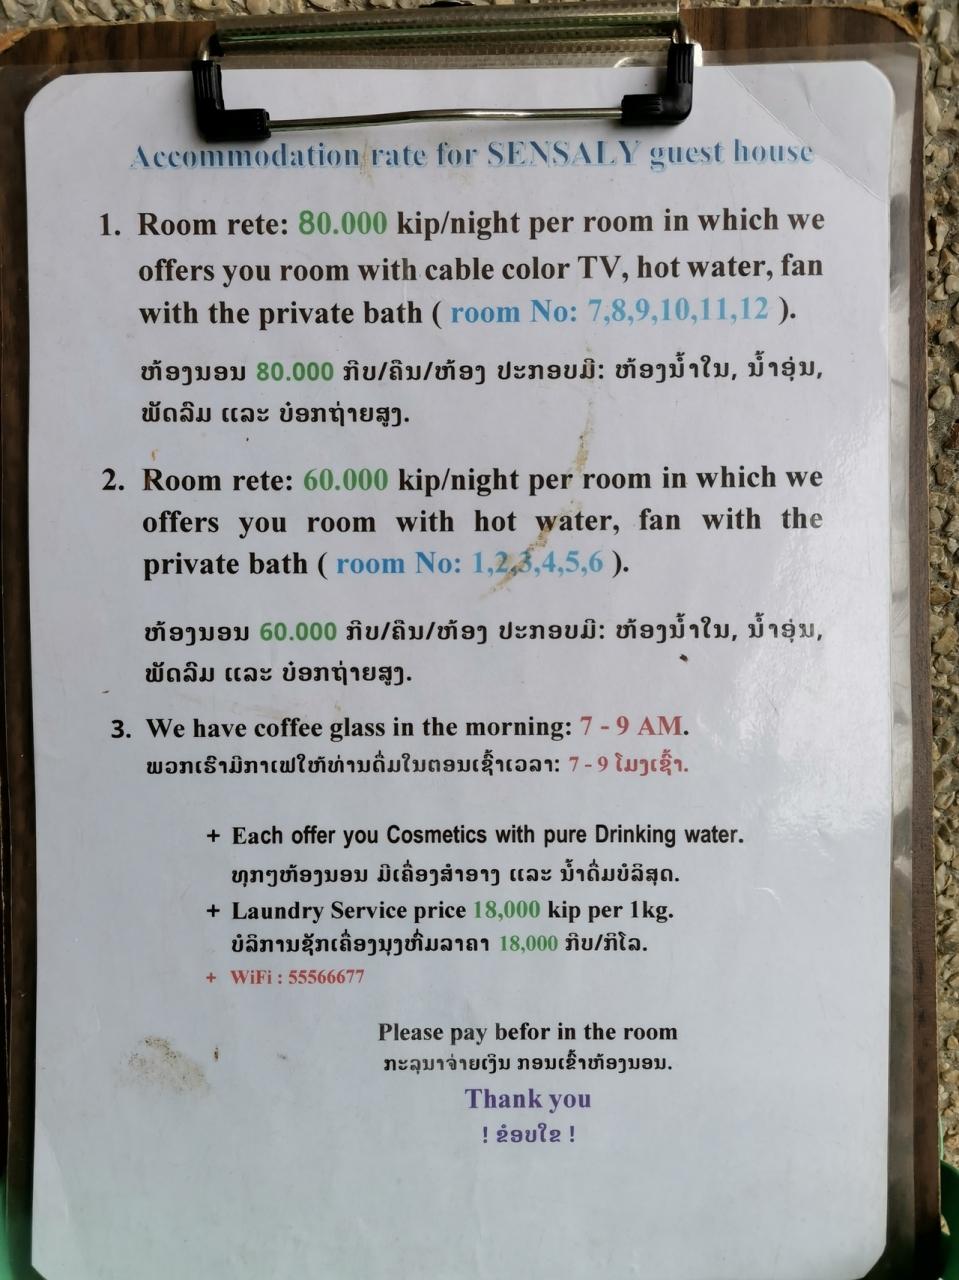 Accommodation rate for SENSALY guest house
1. Room rete: 80.000 kip/night per room in which we
offers you room with cable color TV, hot water, fan
with the private bath ( room No: 7,8,9,10,11,12 ).
ຫ້ອງນອນ 80.000 ກີບ/ຄືນ/ຫ້ອງ ປະກອບມີ: ຫ້ອງນ້ຳໃນ, ນ້ຳອຸ່ນ,
ພັດລົມ ແລະ ບ໋ອກຖ່າຍສູງ.
2. Room rete: 60.000 kip/night per room in which we
offers you room with hot water, fan with the
private bath ( room No: 1,2,3,4,5,6 ).
ຫ້ອງນອນ 60.000 ກີບ/ຄືນ/ຫ້ອງ ປະກອບມີ: ຫ້ອງນ້ຳໃນ, ນ້ຳອຸ່ນ,
ພັດລົມ ແລະ ບ໋ອກຖ່າຍສູງ.
3. We have coffee glass in the morning: 7 - 9 AM.
ພວກເຮົາມີກາເຟໃຫ້ທ່ານດື່ມໃນຕອນເຊົ້າເວລາ: 7 - 9 ໂມງເຊົ້າ.
+ Each offer you Cosmetics with pure Drinking water.
ທຸກໆຫ້ອງນອນ ມີເຄື່ອງສຳອາງ ແລະ ນ້ຳດື່ມບໍລິສຸດ.
+ Laundry Service price 18,000 kip per 1kg.
ບໍລິການຊັກເຄື່ອງນຸງຫົ່ມລາຄາ 18,000 ກີບ/ກິໂລ.
+ WiFi : 55566677
Please pay befor in the room
ກະລຸນາຈ່າຍເງິນ ກອນເຂົ້າຫ້ອງນອນ.
Thank you
! ຂໍອບໃຂ !